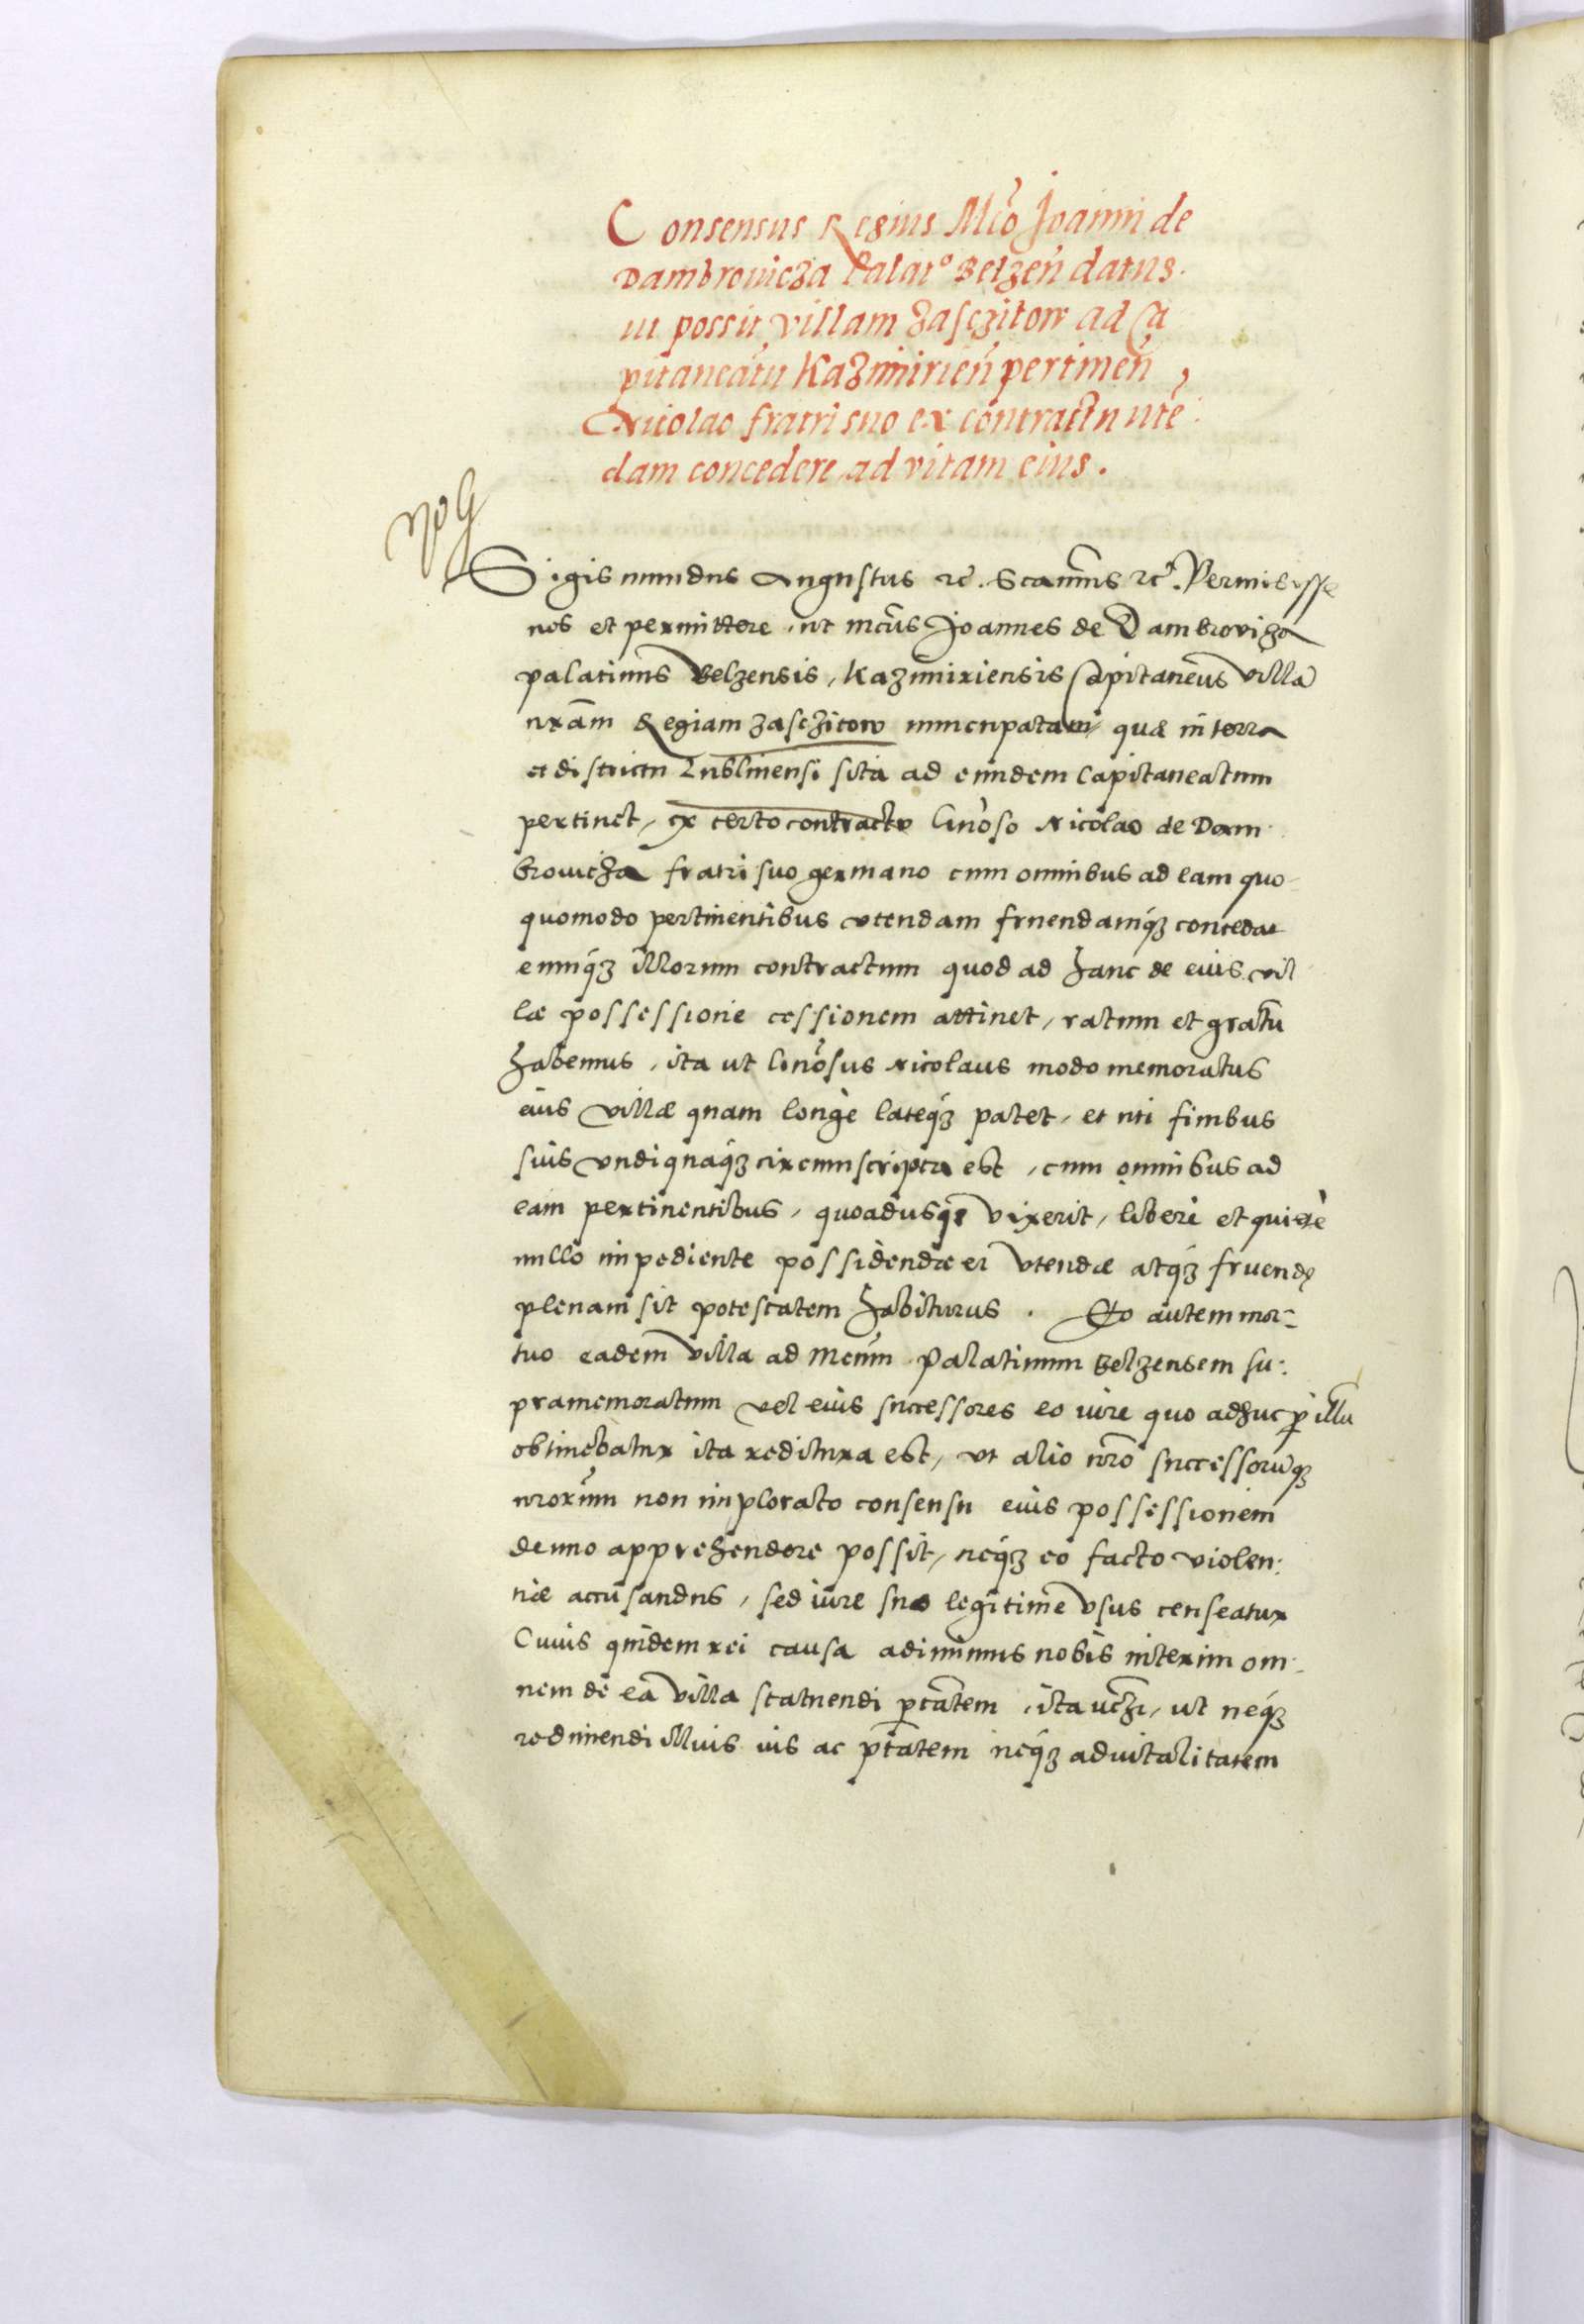 Consensus Regius Mco Joanni de
Dambrouicza Palato Belzen datus.
ut possit villam Zasczitow ad Ca
pitaneatu Kazimirien pertinen,
Nicolao fratri suo ex contractu ute:
dam concedere ad vitam eius.
Sigismundus Augustus etc. Scamus etc. Permisisse
nos et permittere, ut mcus Joannes de Dambroviza
palatinus Belzensis, Kazimiriensis Capitaneus villa
nram Regiam Zasczitow nuncupatam, quæ in terra
et districtu Lublinensi sita ad eundem Capitaneatum
pertinet, ex certo contractu Gnoso Nicolao de Dam
brouicza fratri suo germano cum omnibus ad eam quo-
quomodo pertinentibus utendam fruendamq3 concedat
eumq3 illorum contractum quod ad hanc de eius vil
læ possessione cessionem attinet, ratum et gratu
habemus, ita ut Gnosus Nicolaus modo memoratus
eius villæ quam longè lateq3 patet, et uti finibus
suis undiquaq3 circumscripta est, cum omnibus ad
eam pertinentibus, quoadusq3 vixerit, liberè et quietè
nullo impediente possidendæ ei utendæ atq3 fruendę
plenam sit potestatem habiturus. Eo autem mor-
tuo eadem villa ad Mcum Palatinum Belzensem su:
pramemoratum vel eius successores eo iure quo adhuc p illu
obtinebatur ita reditura est, ut alio nro successoruq3
nrorum non implorato consensu eius possessionem
denuo apprehendere possit, neq3 eo facto violen:
tiæ accusandus, sed iure suo legitime usus censeatur
Cuius quidem rei causa adimimus nobis interim om-
nem de ea villa statuendi ptatem, ita uczi, ut neq3
redimendi illius ius ac ptatem neq3 advitalitatem